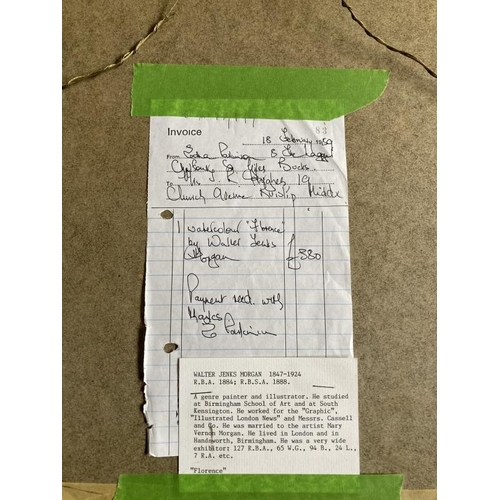 83
INVOICE
18 February 1989
From
Bucks.
To Ms. R. Hughes 19
Church Avenue Ruislip Middx
1 watercolour "Florence"
by Walter Jenks
Morgan £380
Payment recd. with
thanks
WALTER JENKS MORGAN 1847-1924
R.B.A. 1884; R.B.S.A. 1888.
A genre painter and illustrator. He studied
at Birmingham School of Art and at South
Kensington. He worked for the "Graphic",
"Illustrated London News" and Messrs. Cassell
and Co. He was married to the artist Mary
Vernon Morgan. He lived in London and in
Handsworth, Birmingham. He was a very wide
exhibitor: 127 R.B.A., 65 W.G., 94 B., 24 L.,
7 R.A. etc.
"Florence"